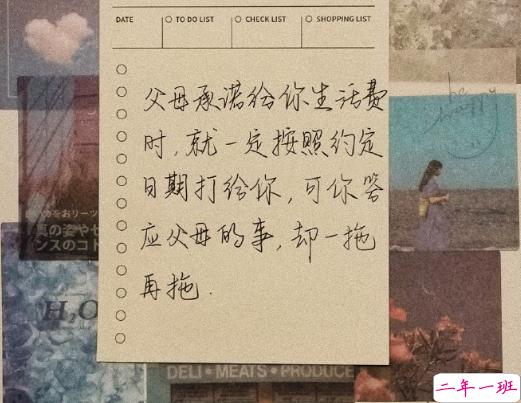 DATE
TO DO LIST
CHECK LIST
SHOPPING LIST
父母承诺给你生活费
时,就一定按照约定
日期打给你,可你答
应父母的事,却一拖
再拖.
happy
H₂O
DELI • MEATS • PRODUCE
二年一班